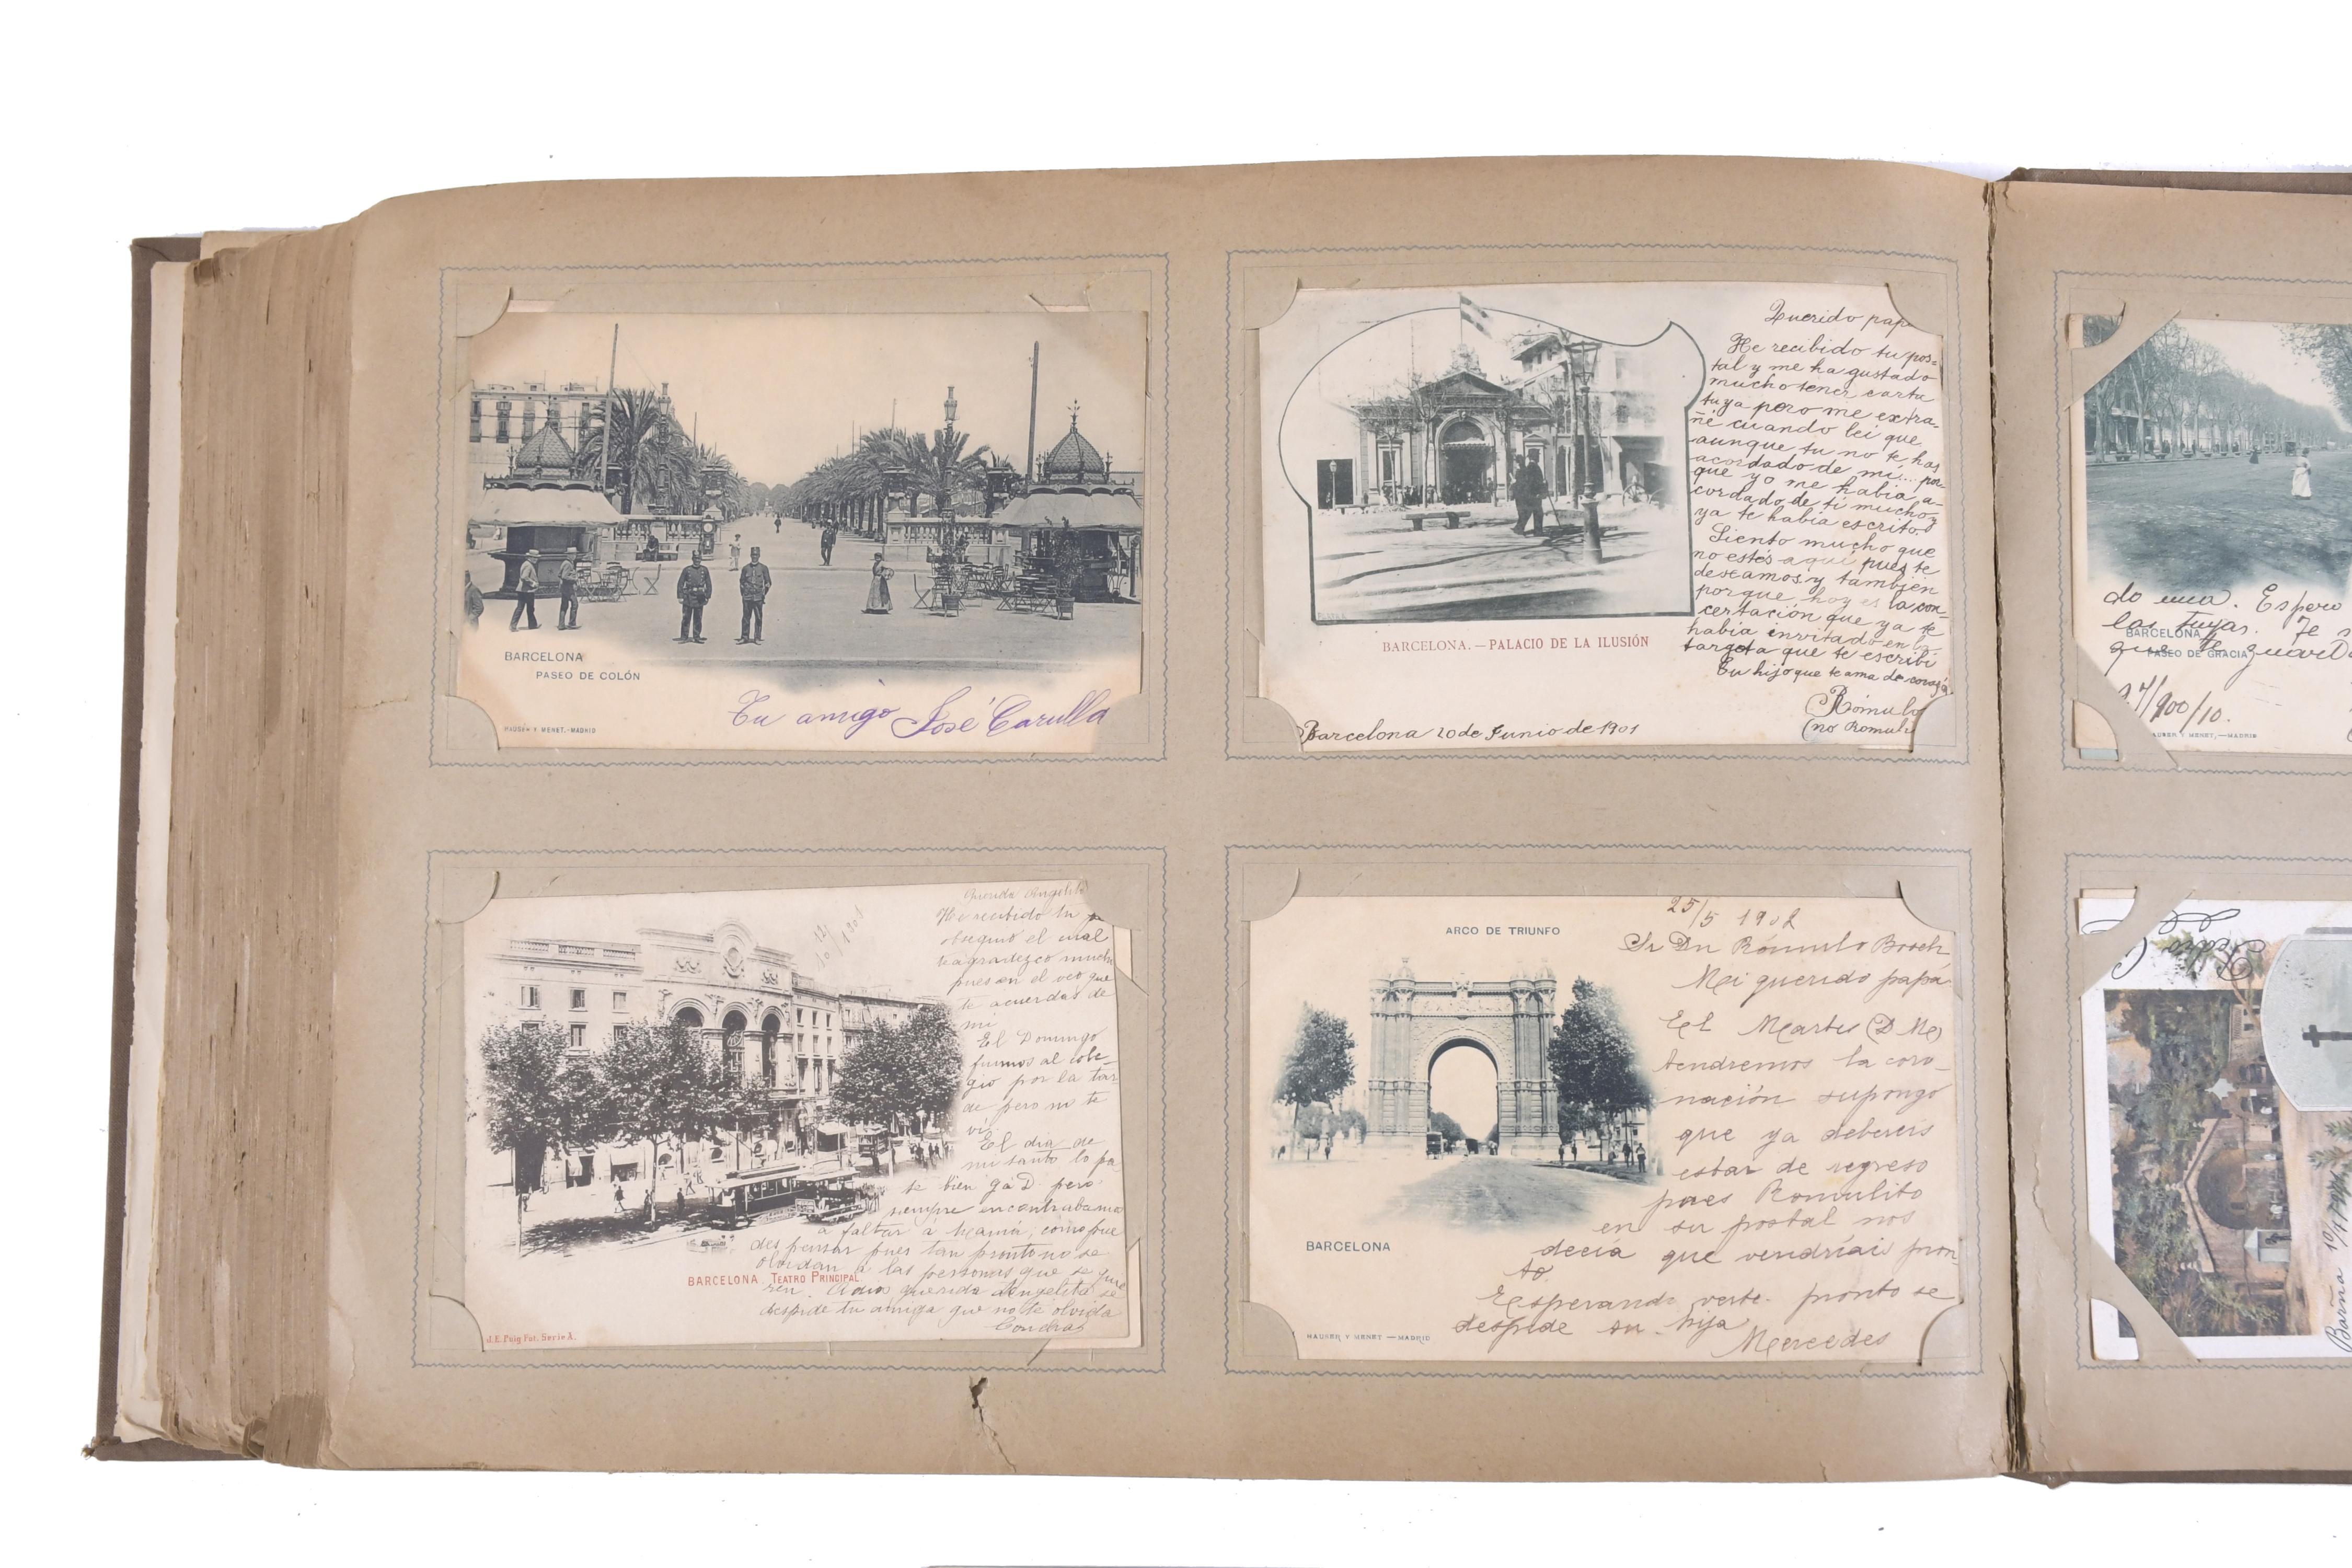 BARCELONA
PASEO DE COLÓN
HAUSER Y MENET.-MADRID
Tu amigo José Carulla
Querido pap
He recibido tu pos=
tal y me ha gustado
mucho tener carta
tuya pero me extra-
ñé cuando leí que
aunque tu no te has
acordado de mí... por
que yo me habia a-
cordado de ti mucho y
ya te habia escrito.
Siento mucho que
no estés aquí pues te
deseamos y también
porque hoy es la con-
certación que ya te
habia invitado en la
targeta que te escribí
Tu hijo que te ama de
Rómulo
(no Romul
BARCELONA.—PALACIO DE LA ILUSIÓN
Barcelona 20 de Junio de 1901
Querida Angelita
He recibido tu
obsequio el cual
te agradezco much
pues en el veo que
te acuerdas de
mi
El Domingo
fuimos al cole-
gio por la tar
de pero no te
ví.
El dia de
mi santo lo pa
se bien gá D. pero
siempre encontrabamos
a faltar á mamá, como pue
des pensar pues tan pronto no se
olvidan á las personas que se quie
ren. Adios querida Angelita se
despide tu amiga que no te olvida
BARCELONA. TEATRO PRINCIPAL
J.E. Puig Fot. Serie A.
25/5 1902
ARCO DE TRIUNFO
Sr Dn Rómulo Bosch
Mi querido papá
El Martes (D. M)
tendremos la coro-
nación supongo
que ya debereis
estar de regreso
pues Romulito
en su postal nos
decía que vendríais pron
to
Esperando verte pronto se
despide su hija
Mercedes
BARCELONA
HAUSER Y MENET —MADRID
do una. Espero
las tuyas. Te
BARCELONA
PASEO DE GRACIA
que te guard
/900/10.
HAUSER Y MENET.—MADRID
Pedro
Barña 10/